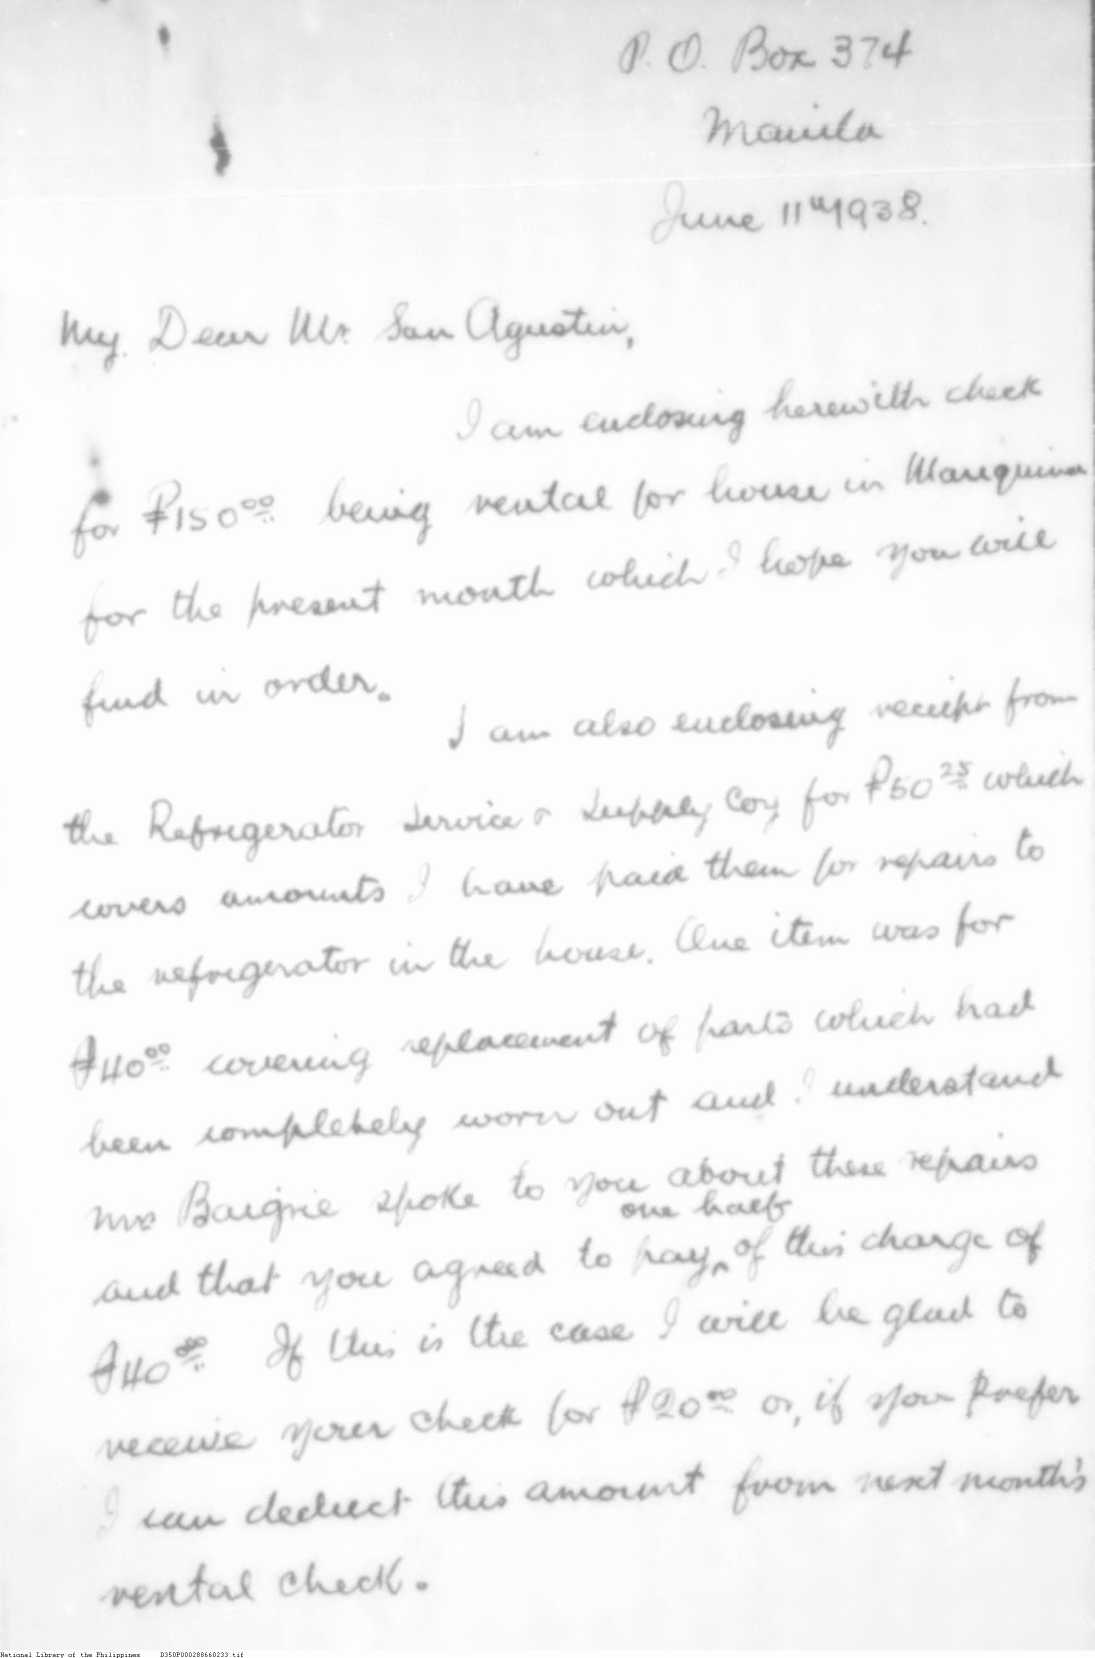 P. O. Box 374
Manila
June 11th 1938.
My Dear Mr. San Agustin,
I am enclosing herewith check
for ₱150.00 being rental for house in Mariquina
for the present month which I hope you will
find in order.
I am also enclosing receipt from
the Refrigerator Service & Supply Coy for ₱50.25 which
covers amounts I have paid them for repairs to
the refrigerator in the house. One item was for
₱40.00 covering replacement of parts which had
been completely worn out and I understand
Mrs Baigrie spoke to you about these repairs
one half
and that you agreed to pay ‸ of this charge of
₱40.00 If this is the case I will be glad to
receive your check for ₱20.00 or, if you prefer
I can deduct this amount from next month's
rental check.
National Library of the Philippines D350P000288660233.tif